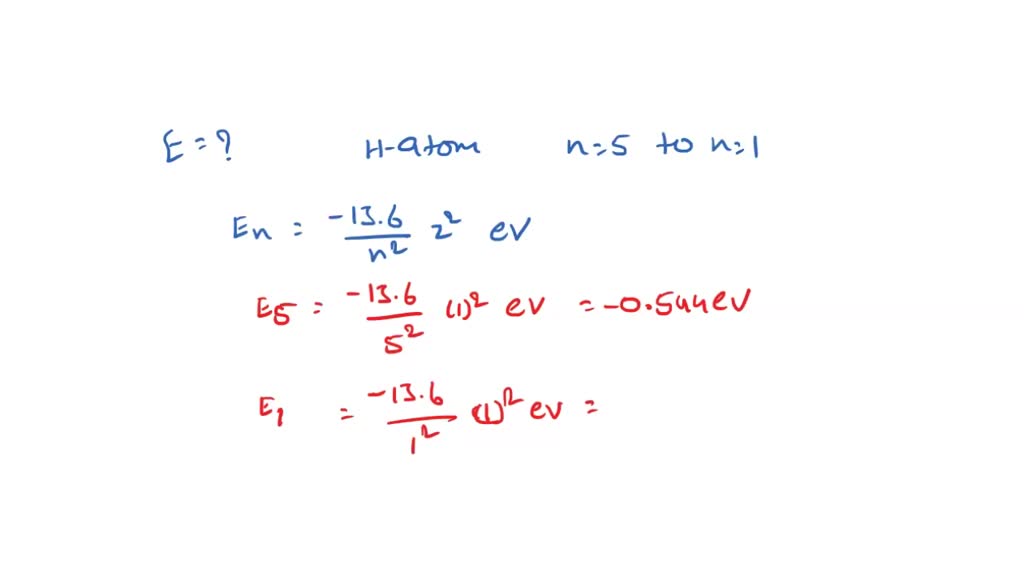 E = ? H-atom n=5 to n=1
En = -13.6/n² z² ev
E5 = -13.6/5² (1)² ev = -0.544ev
E1 = -13.6/1² (1)² ev =